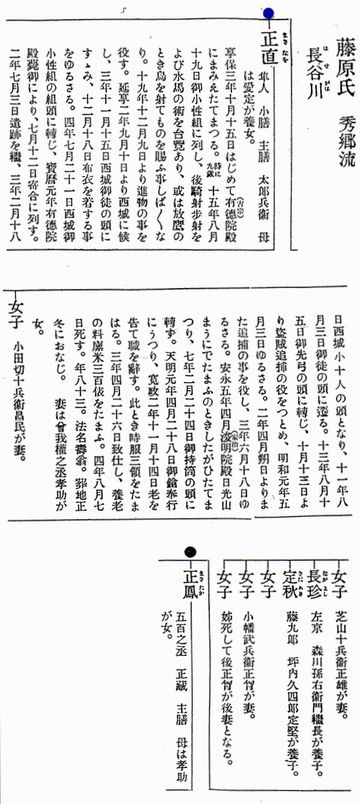 藤原氏 秀郷流
長谷川
はせがは
正直
まさなを
隼人 小膳 主膳 太郎兵衞 母
は愛定が養女。
享保三年十月十五日はじめて有德院殿
(吉宗)
にまみえたてまつる。時に九歲 十五年八月
十九日御小性組に列し、後騎射步射を
よび水馬の術を台覽あり、或は放鷹の
とき鳥を射てものを賜ふ事しば〱な
り。十九年十二月九日より進物の事を
役す。延享二年九月十日より西城に候
し、三年十一月十五日西城御徒の頭に
すゝみ、十二月十八日布衣を着する事
をゆるさる。四年七月二十一日西城御
小性組の組頭に轉じ、寶曆元年有德院
殿薨御により、七月十二日寄合に列す。
二年七月三日遺跡を繼、三年二月十八
日西城小十人の頭となり、十一年八
月三日御徒の頭に遷る。十三年八月十
五日御先弓の頭に轉じ、十月十三日よ
り盜賊追捕の役をつとめ、明和元年五
月三日ゆるさる。二年四月朔日よりま
た追捕の事を役し、三年六月十八日ゆ
るさる。安永五年四月浚明院殿日光山
(家治)
まうにでたまふのときしたがひたてま
つり、七年二月二十四日御持筒の頭に
轉ず。天明元年四月二十八日御鎗奉行
にうつり、寬政二年十一月十四日老を
告て職を辭す。此とき時服三領をたま
はる。三年四月二十六日致仕し、養老
の料廩米三百俵をたまふ。四年八月七
日死す。年八十三。法名壽翁。葬地正
冬におなじ。 妻は曾我權之丞孝助が
女。
女子 小田切十兵衞昌民が妻。
女子 芝山十兵衞正雄が妻。
長珍 左京 森川孫右衞門繼長が養子。
ながよし
定秋 藤九郎 坪内久四郎定堅が養子。
さだあき
女子
女子 小幡武兵衞正智が妻。
女子 姉死して後正智が後妻となる。
正鳳 五百之丞 正藏 主膳 母は孝助
まさたか
が女。